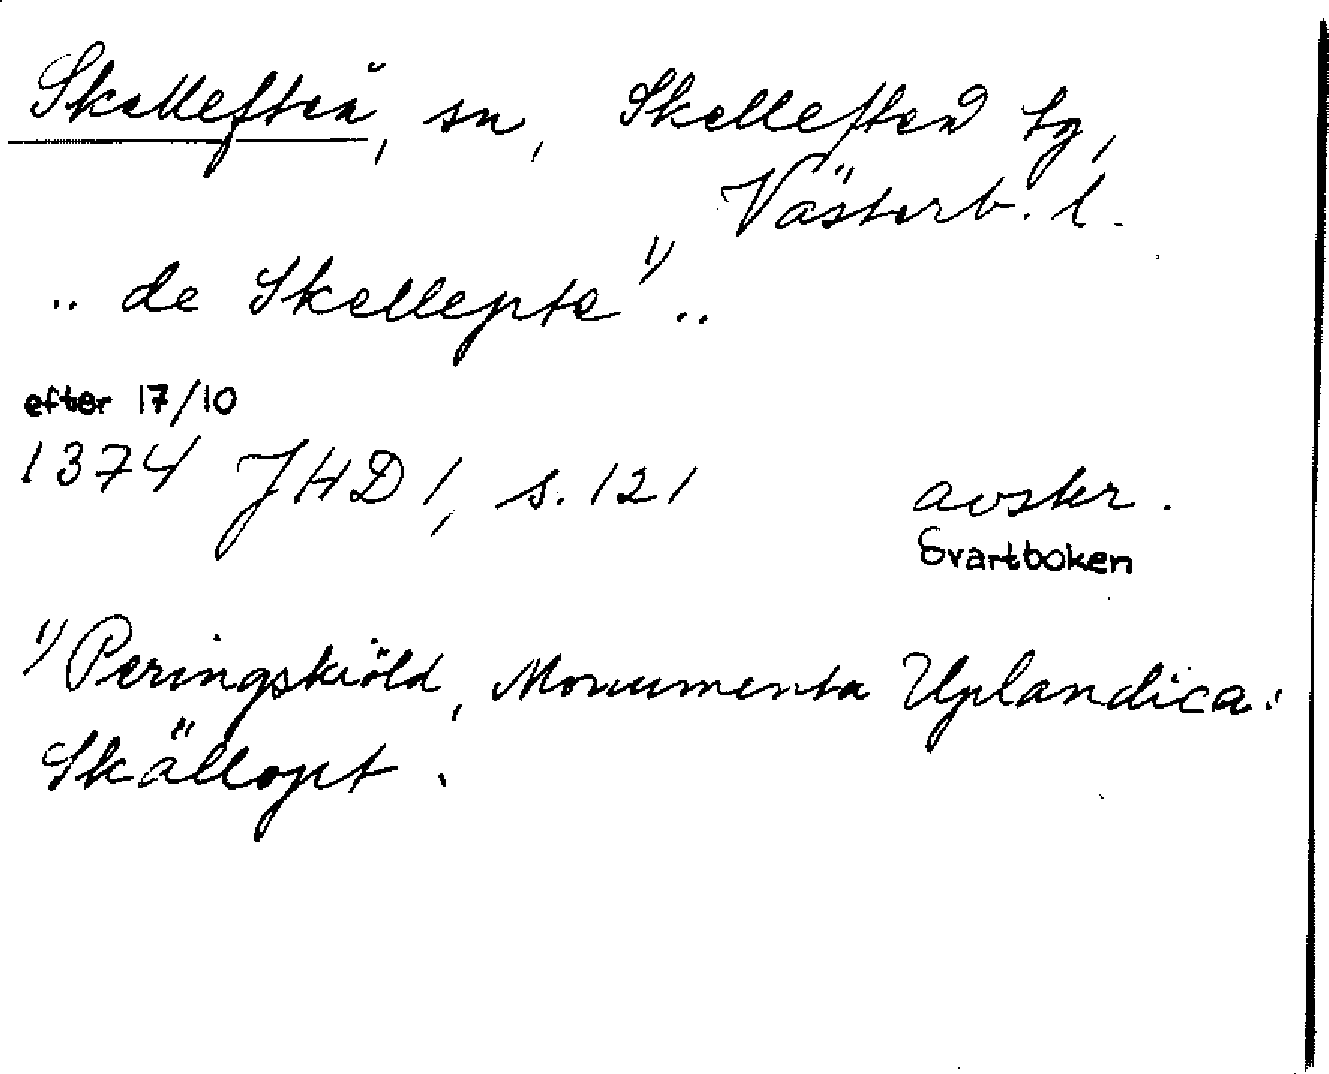 Skellefteå, sn, Skellefteå tg,
Västerb. l.
.. de Skellepte 1) ..
efter 17/10
1374 JHD 1, s. 121 avskr.
Svartboken
1) Peringskiöld, Monumenta Uplandica:
Skällopt.